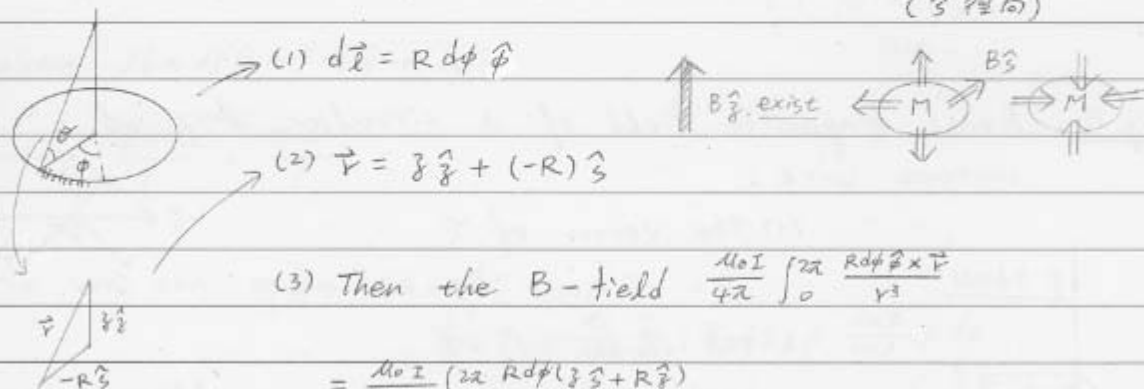 (ŝ 徑向)
(1) d𝓵⃗ = R dφ φ̂
Bŝ
Bẑ, exist
M M
θ
φ
(2) r⃗ = z ẑ + (-R) ŝ
(3) Then the B-field μ₀I/4π ∫₀^2π R dφ φ̂ × r⃗ / r³
r⃗ zẑ
-Rŝ
= μ₀I ∫ 2π R dφ (z ŝ + R ẑ)